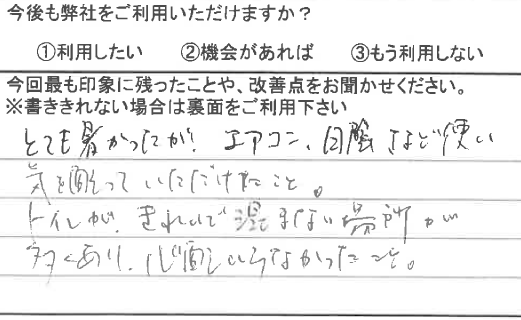 今後も弊社をご利用いただけますか？
①利用したい　②機会があれば　③もう利用しない
今回最も印象に残ったことや、改善点をお聞かせください。
※書ききれない場合は裏面をご利用下さい
とても暑かったが、エアコン、日陰など使い
気を配っていただけたこと。
トイレが、きれいで混まない場所が
多くあり、心配いらなかったこと。